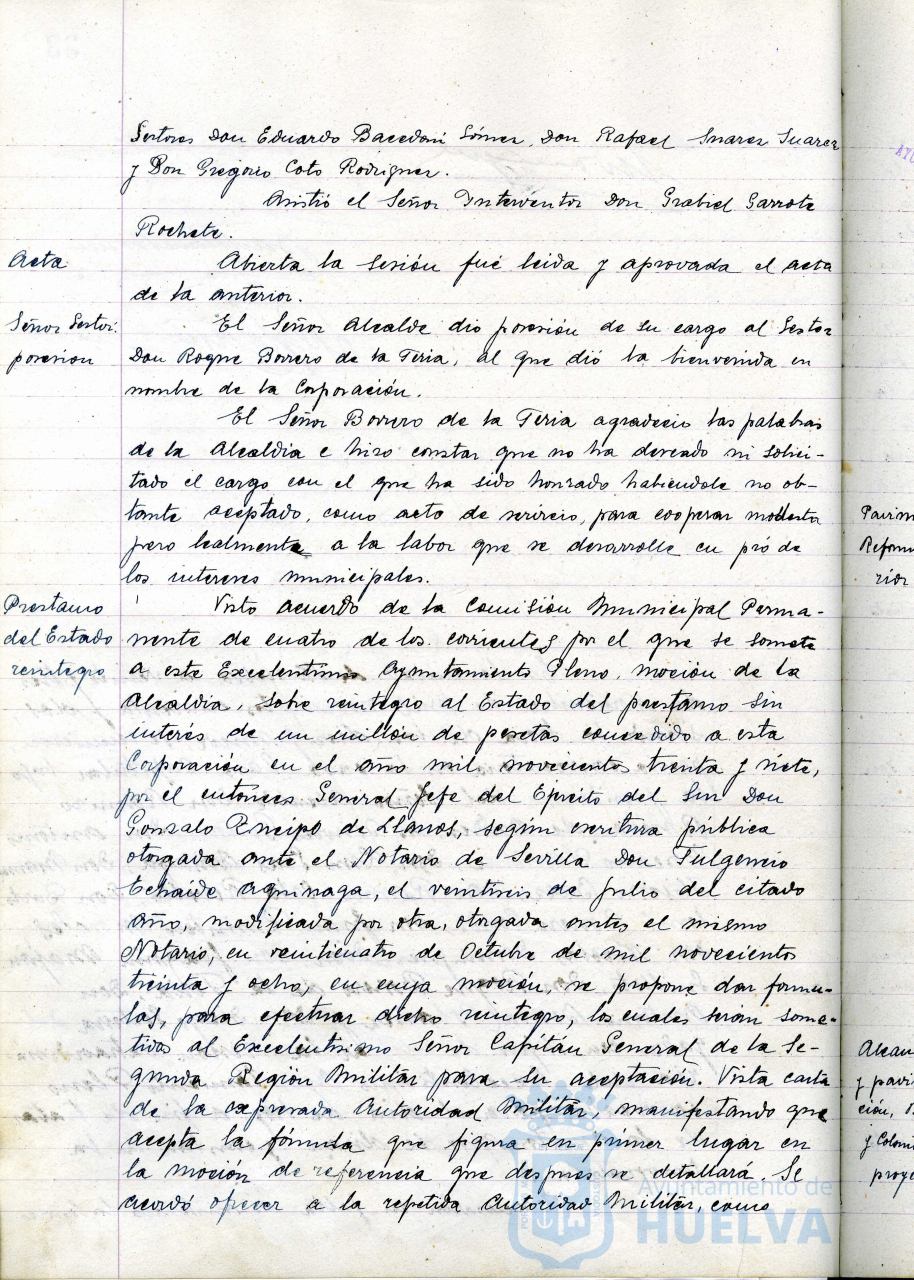 Gestores Don Eduardo Bacedoni Gómez, Don Rafael Suarez Suarez
y Don Gregorio Coto Rodriguez.
Asistió el Señor Interventor Don Grabiel Garrote
Rochete.
Acta
Abierta la sesión fué leida y aprovada el acta
de la anterior.
Señor Gestor.
posesion
El Señor Alcalde dió posesión de su cargo al Gestor
Don Roque Borrero de la Feria, al que dió la bienvenida en
nombre de la Corporación.
El Señor Borrero de la Feria agradecio las palabras
de la Alcaldia e hizo constar que no ha deseado ni solici-
tado el cargo con el que ha sido honrado habiendole no ob-
tante aceptado, como acto de servicio, para cooperar modesta
pero lealmente a la labor que se desarrolle en pró de
los intereses municipales.
Prestamo
del Estado
reintegro
Visto acuerdo de la Comisión Municipal Perma-
nente de cuatro de los corrientes por el que se somete
a este Excelentisimo Ayuntamiento Pleno, moción de la
Alcaldia, sobre reintegro al Estado del prestamo sin
interés de un millón de pesetas concedido a esta
Corporación en el año mil novecientos treinta y siete,
por el entonces General Jefe del Ejercito del Sur Don
Gonzalo Queipo de Llanos, según escritura pública
otorgada ante el Notario de Sevilla Don Fulgencio
Echaide Aguinaga, el veintiseis de Julio del citado
año, modificada por otra, otorgada antes el mismo
Notario, en veinticuatro de Octubre de mil novecientos
treinta y ocho, en cuya moción, se propone dos formu-
las, para efectuar dicho reintegro, los cuales serán some-
tidas al Excelentisimo Señor Capitán General de la Se-
gunda Región Militar para su aceptación. Vista carta
de la expresada Autoridad Militar, manifestando que
acepta la fórmula que figura en primer lugar en
la moción de referencia que despues se detallará. Se
acordó ofrecer a la repetida Autoridad Militar, como
Ayuntamiento de
HUELVA
Pavim
Reform
rior
Alcan
y pavi
ción,
y Colom
proye